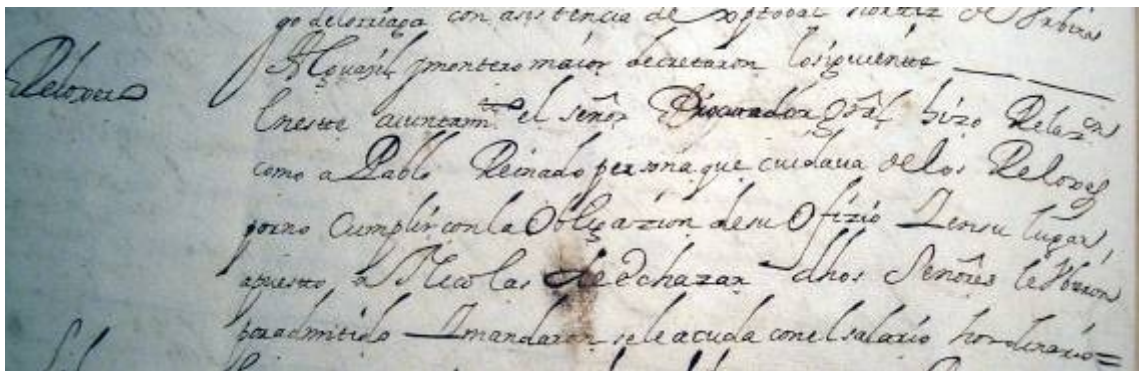 go de loriaga con asistencia de Xptobal hortiz de Urbina
Alguazil y montero maior decretaron lo siguiente
Reloxero
En este aiuntamto el señor Procurador Gral hizo Relazon
como a Pablo Reinado persona que cuidaua de los Reloxes
por no Cumplir con la Obligazion de su Ofizio I en su lugar
a puesto a Nicolas de Echazar dhos Señores le Vbieron
por admitido I mandaron se le acuda con el salario hordinario =